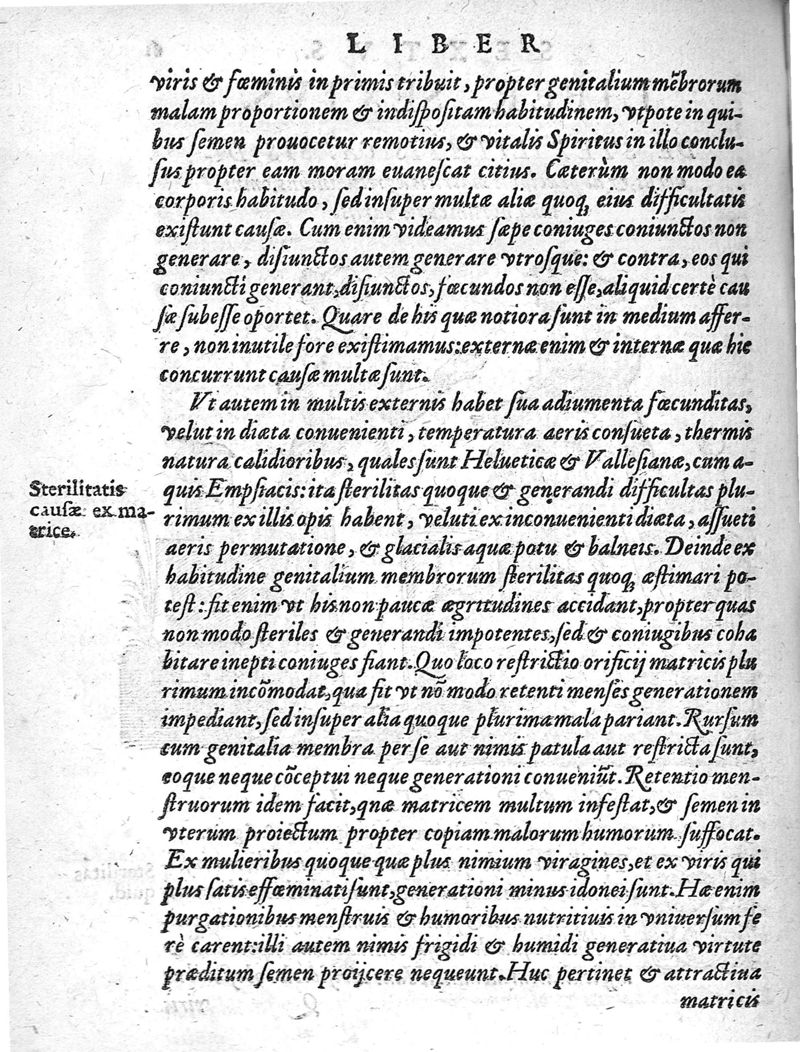 LIBER
viris & fœminis in primis tribuit, propter genitalium mẽbrorum
malam proportionem & indispositam habitudinem, vtpote in qui-
bus semen prouocetur remotius, & vitalis Spiritus in illo conclu-
sus propter eam moram euanescat citius. Cæterùm non modo ea
corporis habitudo, sed insuper multæ aliæ quoq; eius difficultatis
existunt causæ. Cum enim videamus sæpe coniuges coniunctos non
generare, disiunctos autem generare vtrosque: & contra, eos qui
coniuncti generant, disiunctos, fœcundos non esse, aliquid certè cau
sæ subesse oportet. Quare de his quæ notiora sunt in medium affer-
re, non inutile fore existimamus: externæ enim & internæ quæ hic
concurrunt causæ multæ sunt.
Vt autem in multis externis habet sua adiumenta fœcunditas,
velut in diæta conuenienti, temperatura aeris consueta, thermis
natura calidioribus, quales sunt Helueticæ & Vallesianæ, cum a-
Sterilitatis
causæ ex ma-
trice.
quis Empsiacis: ita sterilitas quoque & generandi difficultas plu-
rimum ex illis opis habent, veluti ex inconuenienti diæta, assueti
aeris permutatione, & glacialis aquæ potu & balneis. Deinde ex
habitudine genitalium membrorum sterilitas quoq; æstimari po-
test: fit enim vt his non paucæ ægritudines accidant, propter quas
non modo steriles & generandi impotentes, sed & coniugibus coha
bitare inepti coniuges fiant. Quo loco restrictio orificij matricis plu
rimum incõmodat, qua fit vt nõ modo retenti menses generationem
impediant, sed insuper alia quoque plurima mala pariant. Rursum
cum genitalia membra per se aut nimis patula aut restricta sunt,
eoque neque cõceptui neque generationi conueniũt. Retentio men-
struorum idem facit, qnæ matricem multum infestat, & semen in
vterum proiectum propter copiam malorum humorum suffocat.
Ex mulieribus quoque quæ plus nimium viragines, et ex viris qui
plus satis effœminati sunt, generationi minus idonei sunt. Hæ enim
purgationibus menstruis & humoribus nutritiuis in vniuersum fe
rè carent: illi autem nimis frigidi & humidi generatiua virtute
præditum semen proijcere nequeunt. Huc pertinet & attractiua
matricis